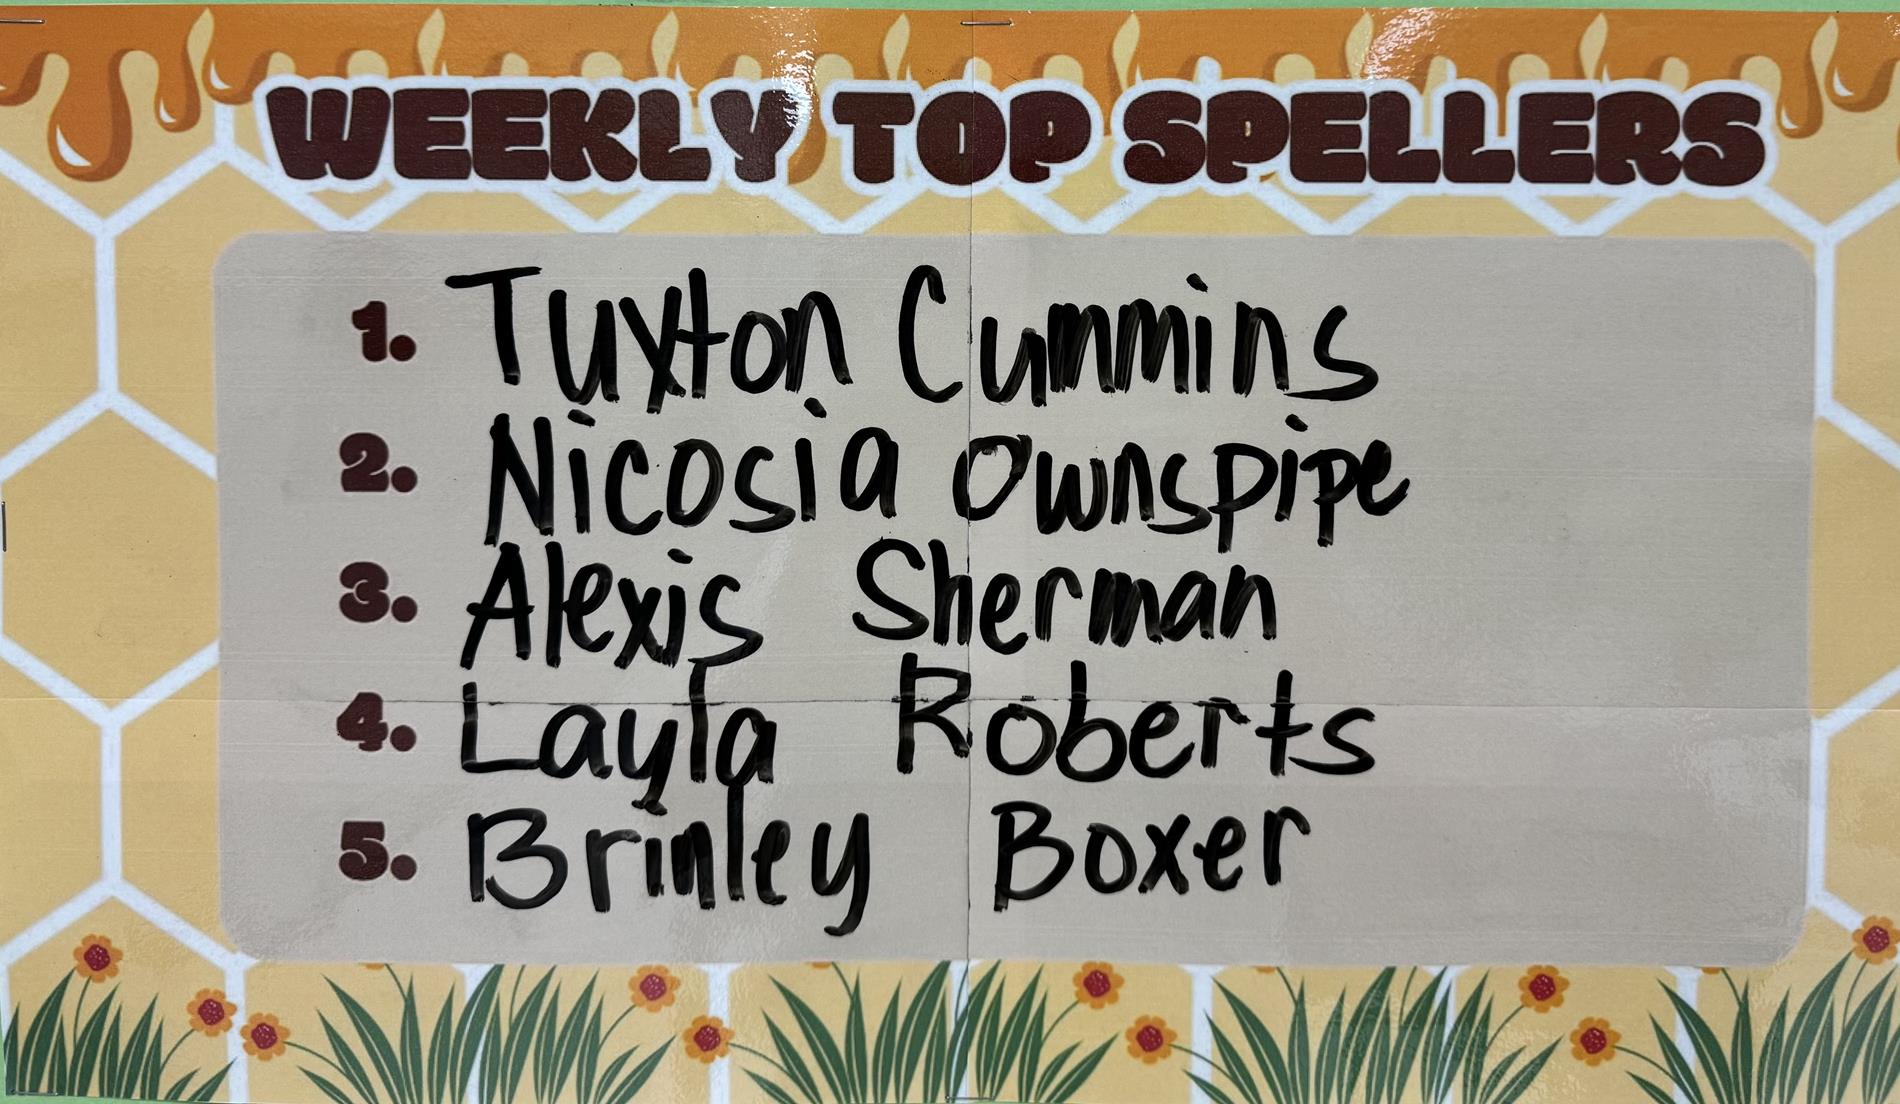 WEEKLY TOP SPELLERS
1. Tuxton Cummins
2. Nicosia Ownspipe
3. Alexis Sherman
4. Layla Roberts
5. Brinley Boxer